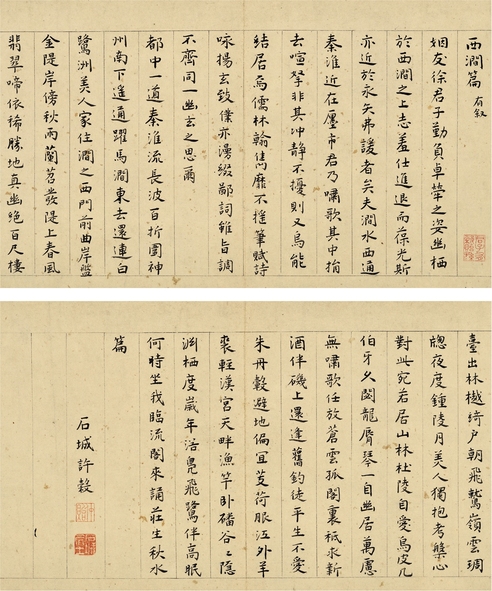 西澗篇 有敘
姻友徐君子勤負卓犖之姿幽栖
於西澗之上志羞仕進退而葆光斯
亦近於永矢弗諼者矣夫澗水西通
秦淮近在廛市君乃嘯歌其中揥
去喧拏非其冲靜不擾則又烏能
結居焉儒林翰雋靡不摇筆賦詩
咏揚玄致僕亦謾綴鄙詞雖旨調
不齊同一幽玄之思爾
都中一道秦淮流長波百折圍神
州南下遙通躍馬澗東去還連白
鷺洲美人家住澗之西門前曲岸盤
金隄岸傍秋雨蘭苕發隄上春風
翡翠啼依稀勝地真幽絶百尺樓
臺出林樾綺戶朝飛鷲嶺雲琱
牕夜度鍾陵月美人獨抱考槃心
對此宛若居山林杜陵自愛烏皮几
伯牙久閟龍脣琴一自幽居萬慮
無嘯歌任放蒼雲孤閣裏秪求新
酒伴磯上還逢舊釣徒平生不愛
朱丹轂避地偏宜芰荷服江外羊
裘輕漢宮天畔漁竿卧磻谷々隱
澗栖度歲年浴鳧飛鷺伴高眠
何時坐我臨流閣來誦莊生秋水
篇
石城許穀